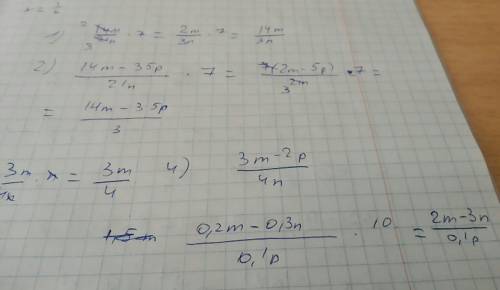 1) 14m/21n · 7 = 2m/3n · 7 = 14m/3n
2) (14m - 35p)/21n · 7 = 7(2m - 5p)/3 · 7 =
= (14m - 35p)/3
= 3m/4 4) (3m - 2p)/4n
(0,2m - 0,3n)/0,1p · 10 = (2m - 3n)/0,1p